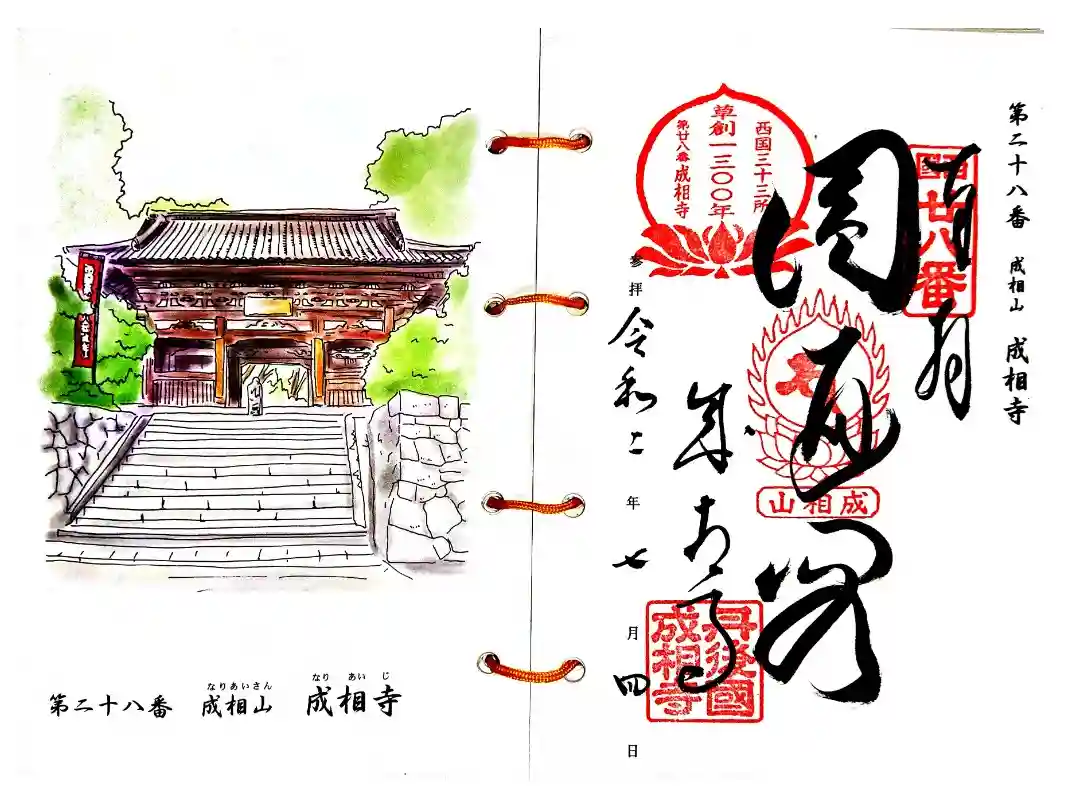 なりあいさん なり あい じ
第二十八番 成相山 成相寺
第二十八番 成相山 成相寺
奉拝
西國
廿八番
圓通閣
成相山
成相寺
丹後國
成相寺
西国三十三所
草創一三〇〇年
第廿八番成相寺
参拝 令和二年七月四日